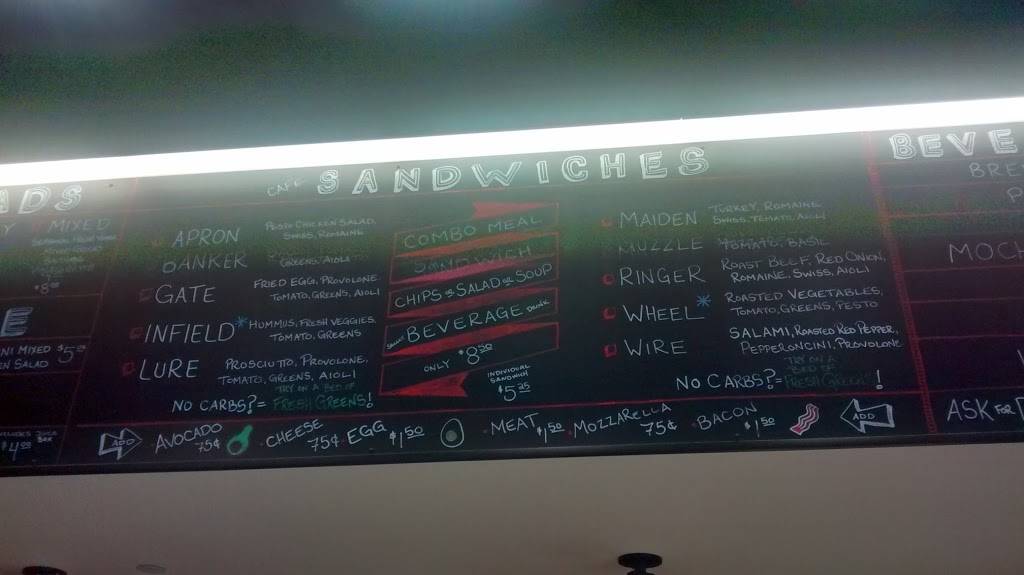 ADS
MIXED
$8
E
MIXED $5
SALAD
$4 50
CAFE SANDWICHES
APRON PESTO CHICKEN SALAD,
SWISS, ROMAINE
BANKER
GREENS, AIOLI
GATE FRIED EGG, PROVOLONE,
TOMATO, GREENS, AIOLI
INFIELD* HUMMUS, FRESH VEGGIES,
TOMATO, GREENS
LURE PROSCIUTTO, PROVOLONE,
TOMATO, GREENS, AIOLI
TRY ON A BED OF
NO CARBS? = FRESH GREENS!
COMBO MEAL
SANDWICH
CHIPS OR SALAD OR SOUP
SMALL BEVERAGE DRINK
ONLY $8.50
INDIVIDUAL
SANDWICH
$5.25
MAIDEN TURKEY, ROMAINE
SWISS, TOMATO, AIOLI
MUZZLE
TOMATO, BASIL
RINGER ROAST BEEF, RED ONION,
ROMAINE, SWISS, AIOLI
WHEEL* ROASTED VEGETABLES,
TOMATO, GREENS, PESTO
WIRE SALAMI, ROASTED RED PEPPER,
PEPPERONCINI, PROVOLONE
TRY ON A
BED OF
NO CARBS? = FRESH GREENS!
ADD AVOCADO 75¢ CHEESE 75¢ EGG $1.50 MEAT $1.50 MOZZARELLA 75¢ BACON $1.50 ADD
BEVE
BRE
P
MOCH
ASK FOR